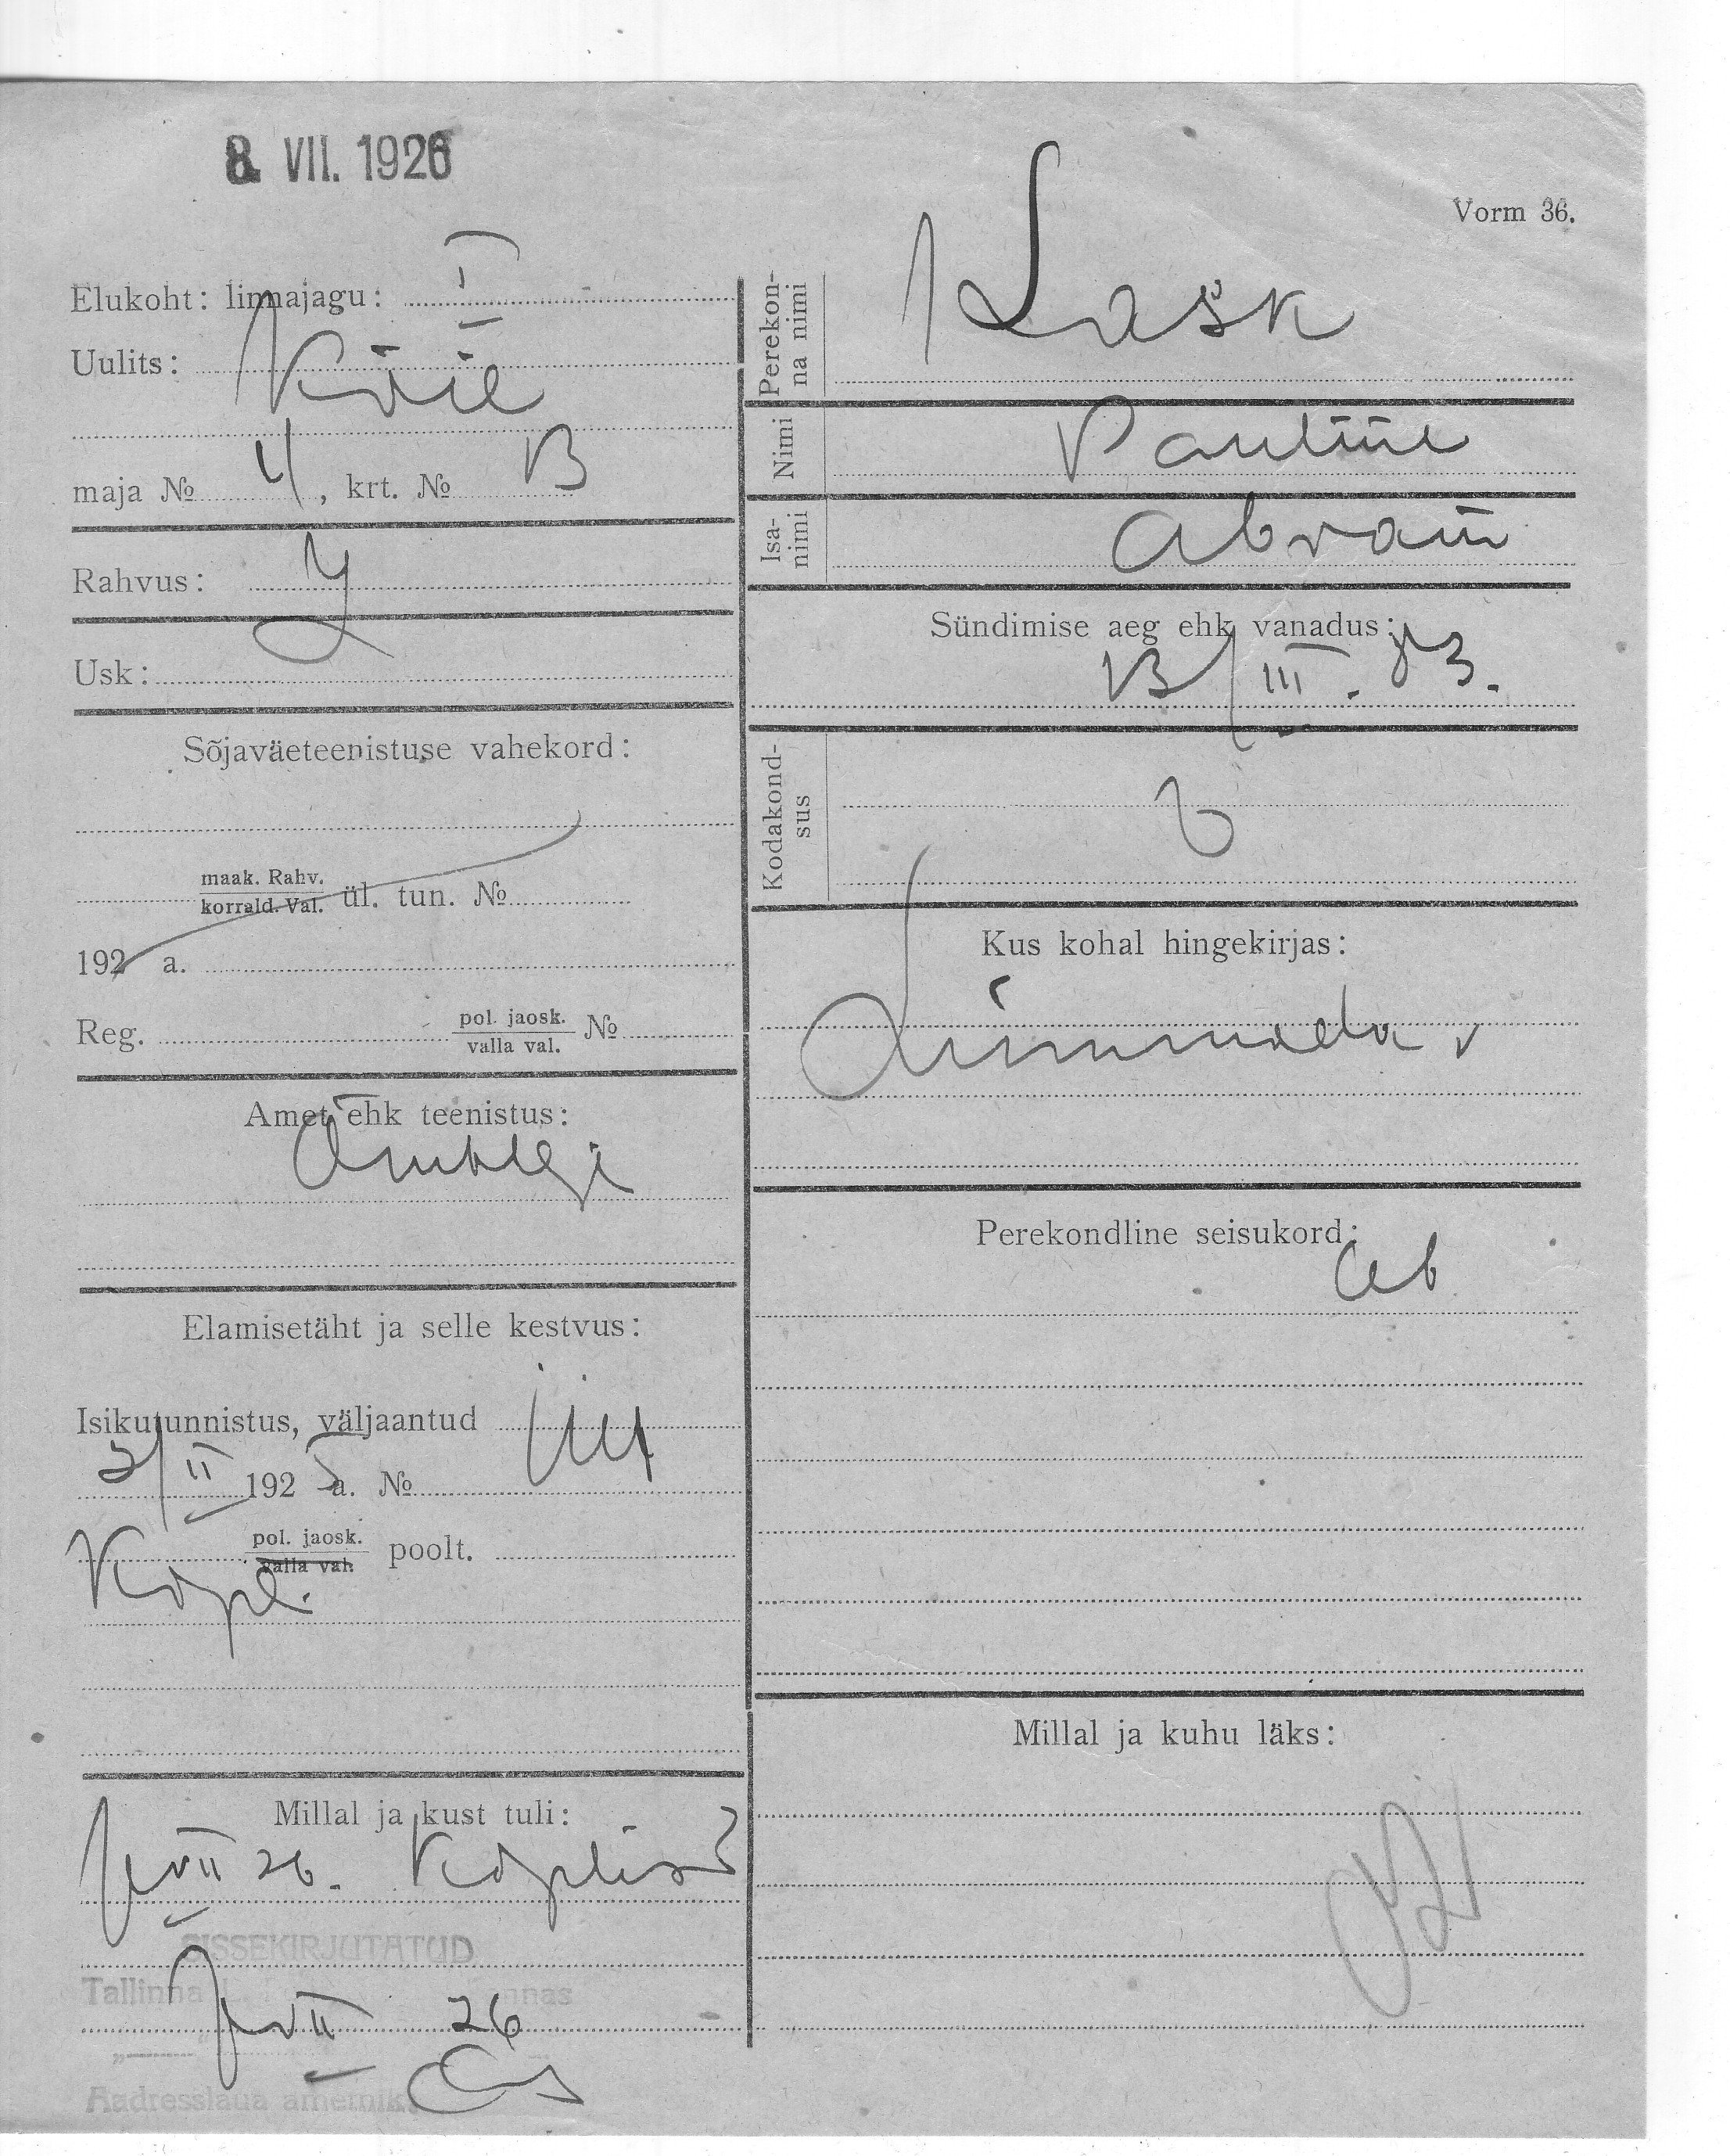 8. VII. 1926
Vorm 36.
Elukoht: linnajagu: I
Uulits:
maja № 4, krt. №
Rahvus:
Usk:
Sõjaväeteenistuse vahekord:
maak. Rahv.
korrald. Val. ül. tun. №
192 a.
Reg. pol. jaosk. №
valla val.
Amet ehk teenistus:
Õmbleja
Elamisetäht ja selle kestvus:
Isikutunnistus, väljaantud
2/II 1925 a. №
pol. jaosk. poolt.
valla val.
Kopl.
Millal ja kust tuli:
VII 26. Koplist
SISSEKIRJUTATUD
Tallinna
VII 26
Aadresslaua ametnik
Perekonna nimi Kask
Nimi Pauline
Isanimi Abram
Sündimise aeg ehk vanadus:
13/III. 83.
Kodakondsus
Kus kohal hingekirjas:
Perekondline seisukord:
ab
Millal ja kuhu läks: